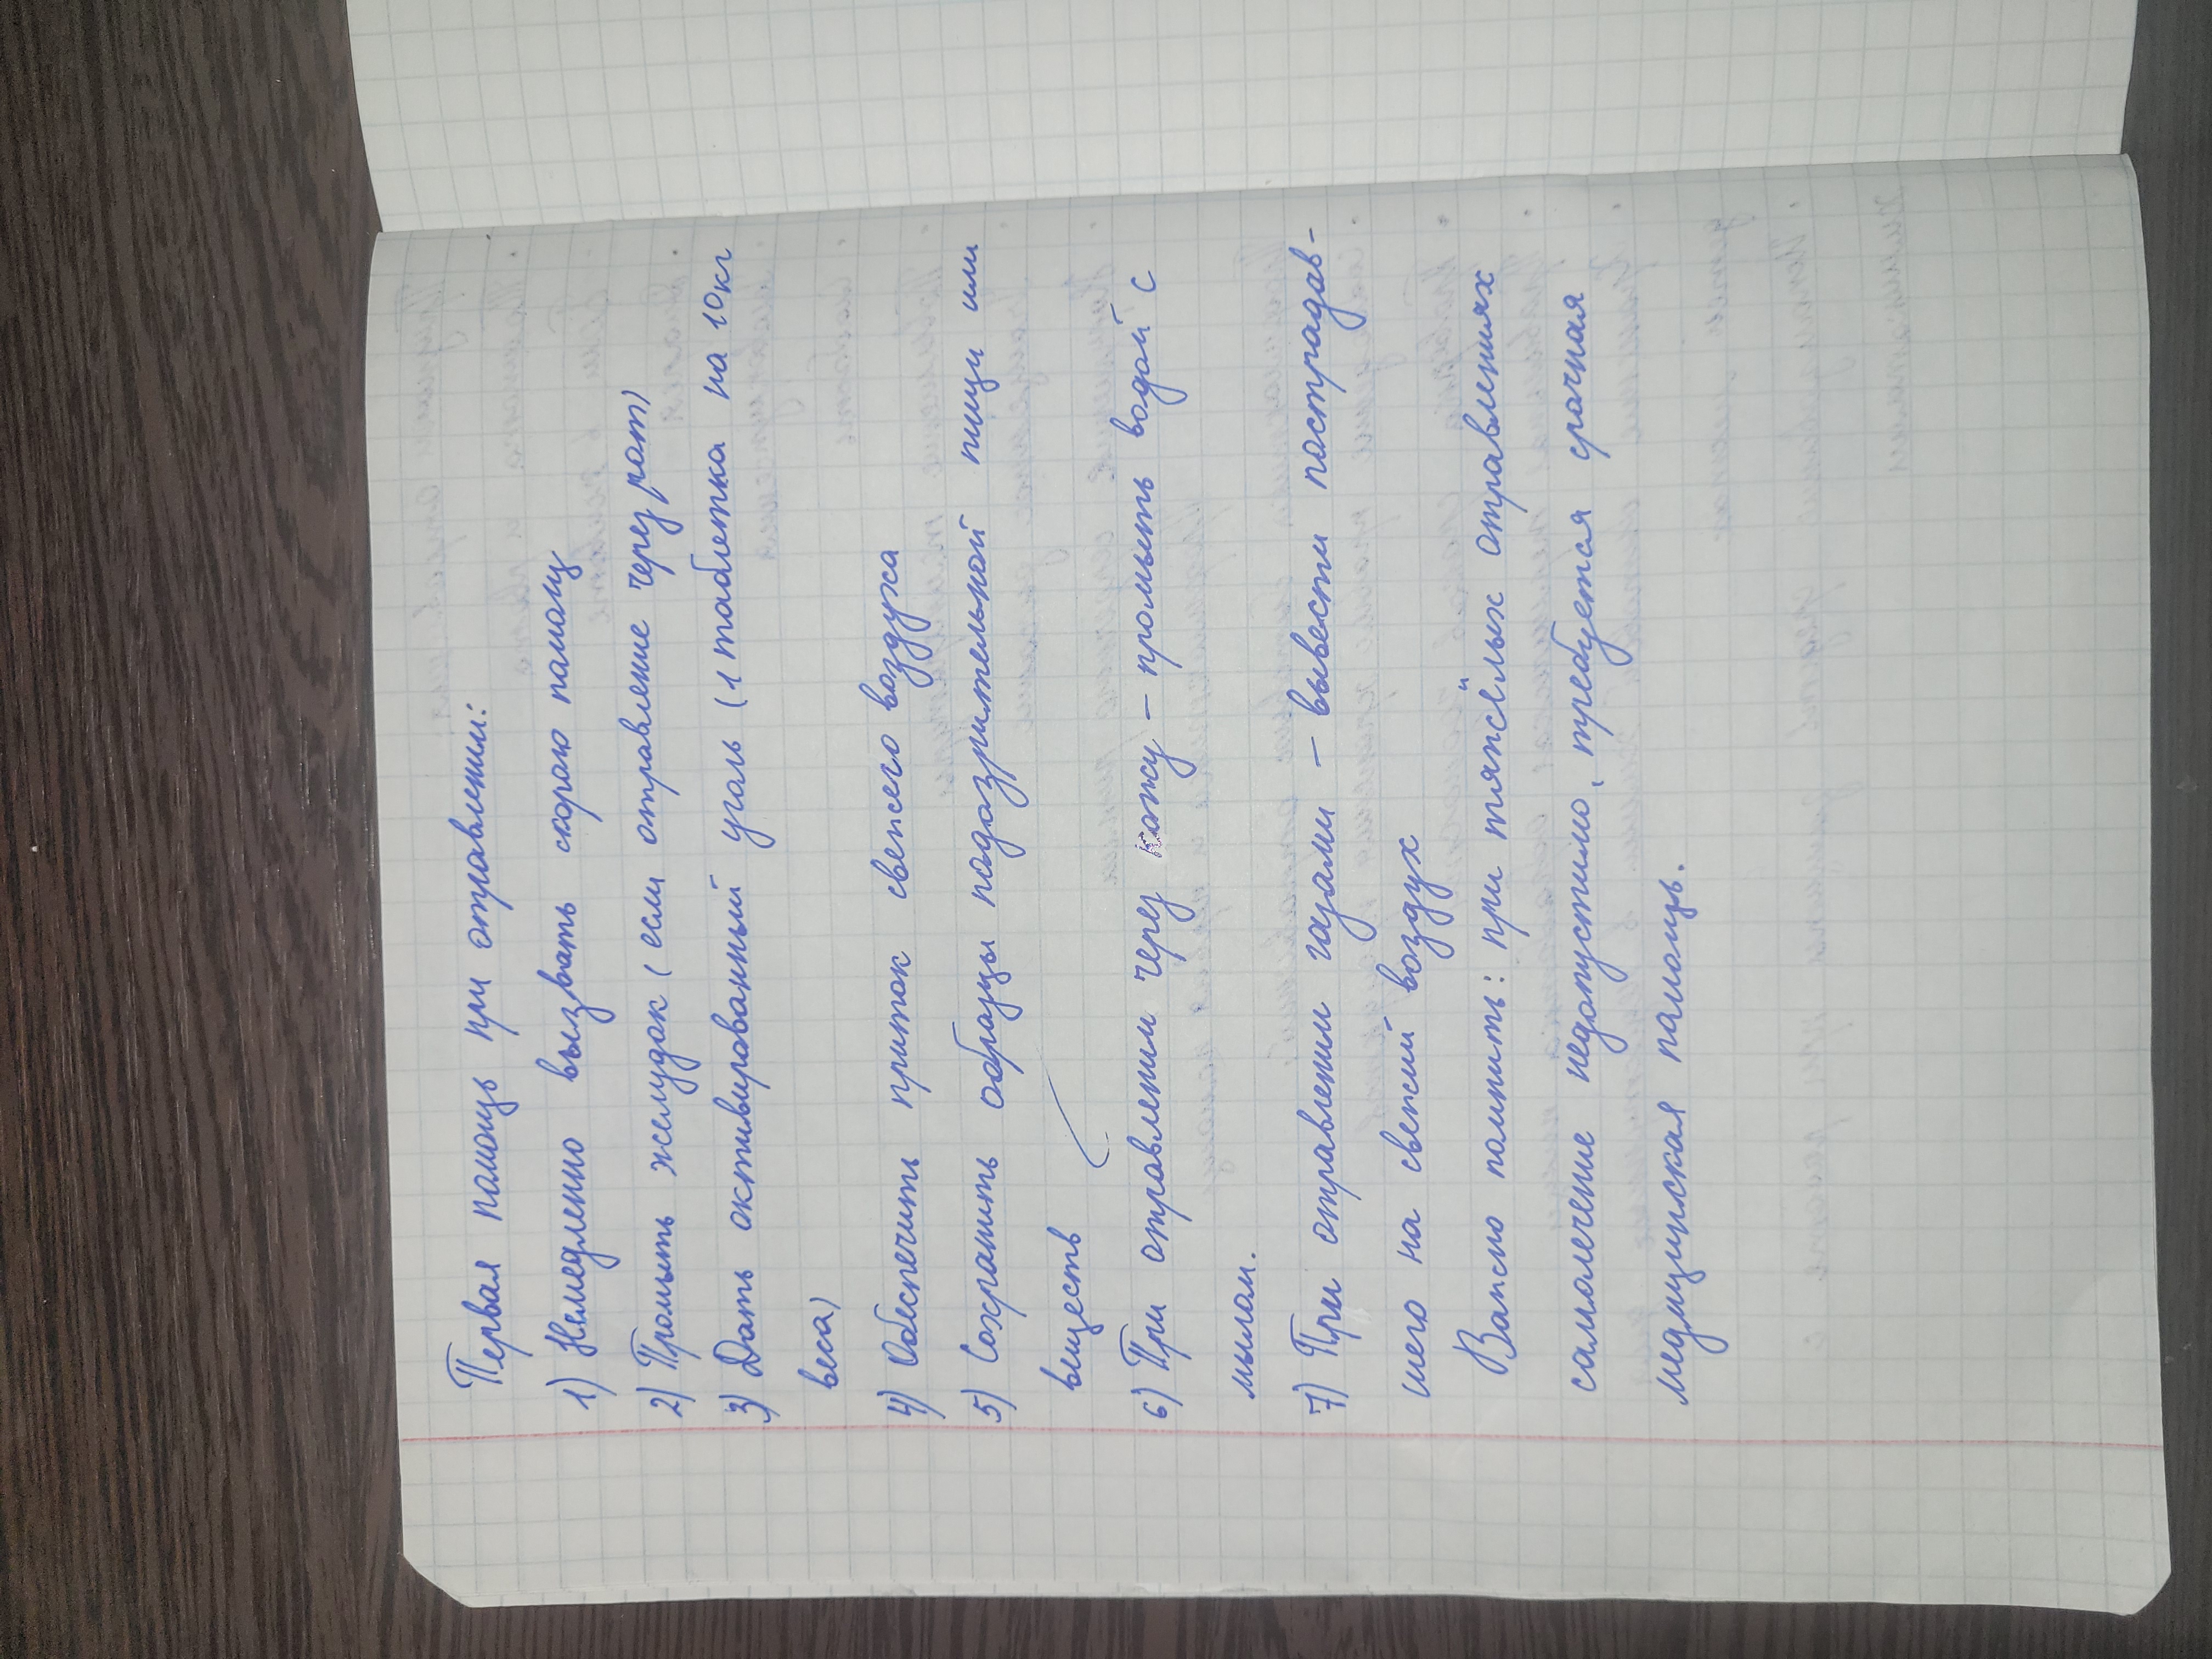 Первая помощь при отравлении:
1) Немедленно вызвать скорою помощ
2) Промыть желудок (если отравление через рот)
3) Дать активированный уголь (1 таблетка на 10кг
веса)
4) Обеспечить приток свежего воздуха
5) Сохранить образцы подозрительной пищи или
веществ
6) При отравлении через кожу – промыть водой с
мылом.
7) При отравлении газами – вывести пострадав-
шего на свежий воздух
Важно помнить: при тяжёлых отравлениях
самолечение недопустимо, требуется срочная
медицинская помощь.